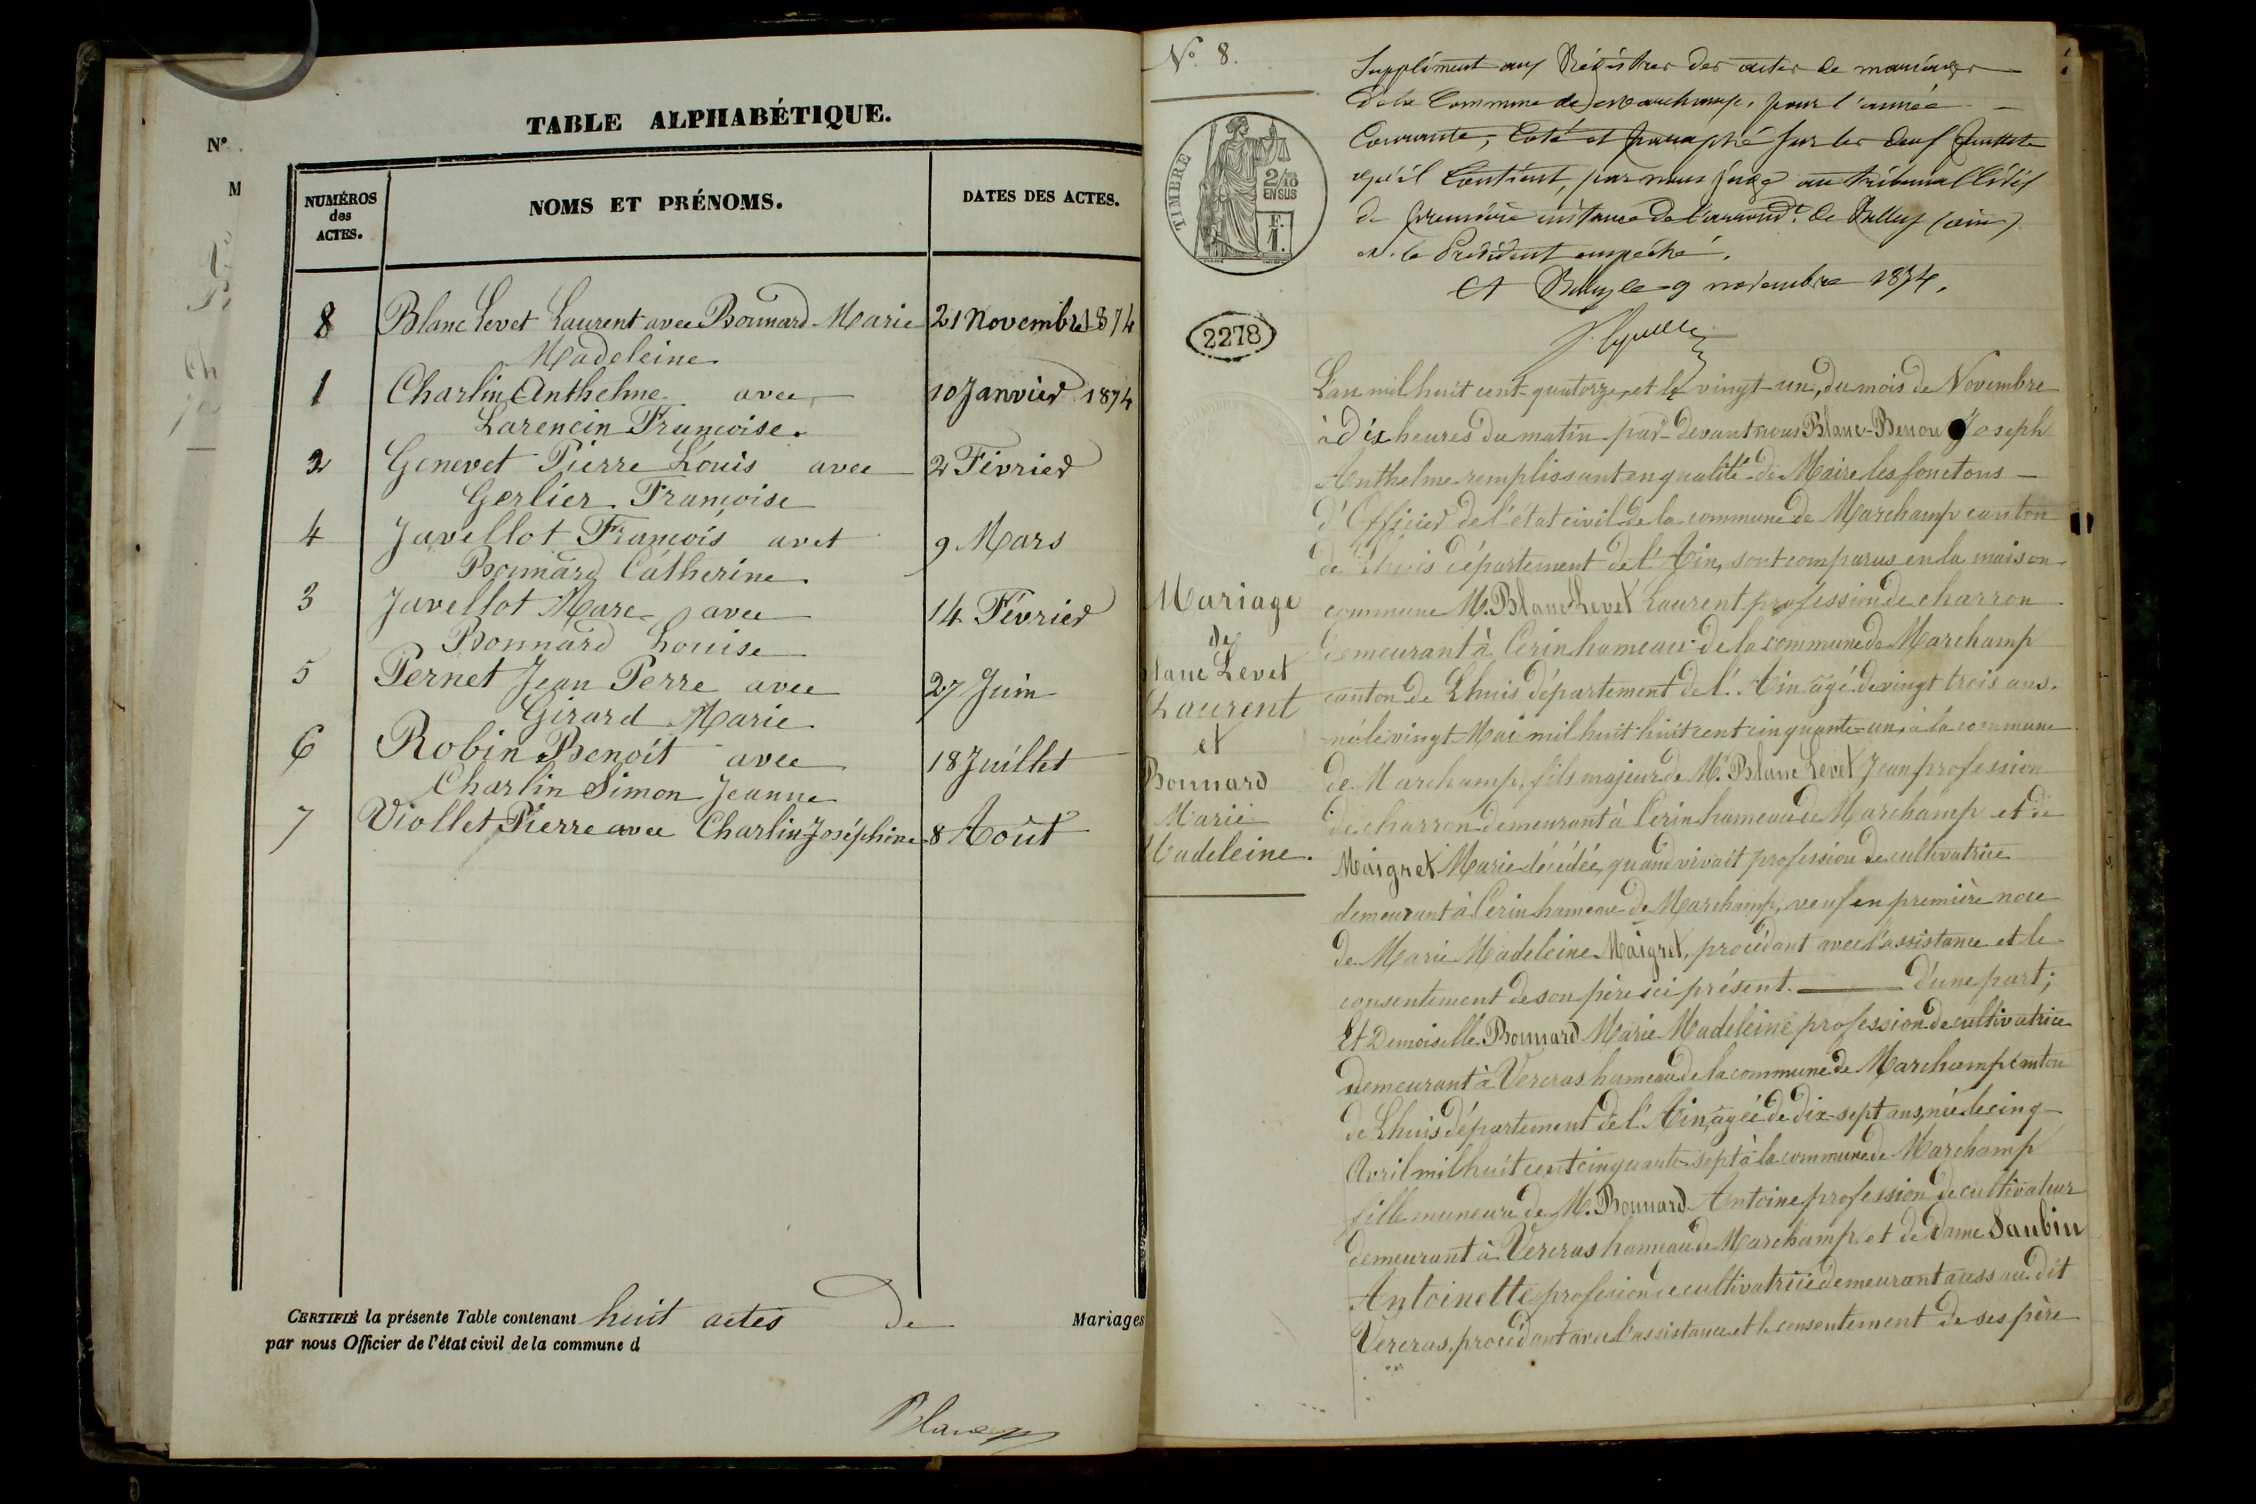 N°
M
TABLE ALPHABÉTIQUE.
NUMÉROS des ACTES.
NOMS ET PRÉNOMS.
DATES DES ACTES.
8 Blanc Levet Laurent avec Bonnard Marie 21 Novembre 1874
Madeleine
1 Charlin Anthelme avec 10 Janvier 1874
Larencin Françoise.
2 Genevet Pierre Louis avec 2 Février
Gerlier Françoise
4 Javellot François avet 9 Mars
Bonnard Catherine
3 Javellot Marc avec 14 Février
Bonnard Louise
5 Pernet Jean Perre avec 27 Juin
Girard Marie
6 Robin Benoit avec 18 Juillet
Charlin Simon Jeanne
7 Viollet Pierre avec Charlin Joséphine 8 Août
CERTIFIÉ la présente Table contenant huit actes de Mariages
par nous Officier de l'état civil de la commune d
Blanc
N° 8.
Supplément aux Régistres des actes de mariages
de la Commune de Marchamp, pour l'année
Courante, Coté et paraphé sur les deux feuillets
qu'il Contient, par nous juge au tribunal Civil
de première instance de l'arrond.t de Belley (ain)
M. le Président empêché.
A Belley le 9 novembre 1874.
TIMBRE
2/10
EN SUS
F.
1.
2278
L'an mil huit cent quatorze, et le vingt-un, du mois de Novembre
à dix heures du matin par-devant nous Blanc-Benon Joseph
Anthelme remplissant en qualité de Maire les fonctons
d'Officier de l'état civil de la commune de Marchamp canton
de Lhuis département de l'Ain, sont comparus en la maison
commune M. Blanc Levet Laurent profession de charron
demeurant à Cerin hameau de la commune de Marchamp
canton de Lhuis département de l'Ain âgé de vingt trois ans.
né le vingt Mai mil huit huit cent cinquante-un, à la commune
de Marchamp, fils majeur de Mr. Blanc Levet Jean profession
de charron demeurant à Cerin hameau de Marchamp et de
Maigret Marie décédée, quand vivait profession de cultivatrice
demeurant à Cerin hameau de Marchamp, veuf en première noce
de Marie Madeleine Maigret, procédant avec l'assistance et le
consentement de son père ici présent. d'une part;
Et Demoiselle Bonnard Marie Madeleine profession de cultivatrice
demeurant à Vercras hameau de la commune de Marchamp canton
de Lhuis département de l'Ain, agée de dix-sept ans, née le cinq
Avril mil huit cent cinquante-sept à la commune de Marchamp
fille mineure de M. Bonnard Antoine profession de cultivateur
demeurant à Vercras hameau de Marchamp et de Dame Saubin
Antoinette profession de cultivatrice demeurant aussi au dit
Vercras, procédant avec l'assistance et le consentement de ses père
Mariage
de
lanc Levet
Laurent
et
Bonnard
Marie
Madeleine.